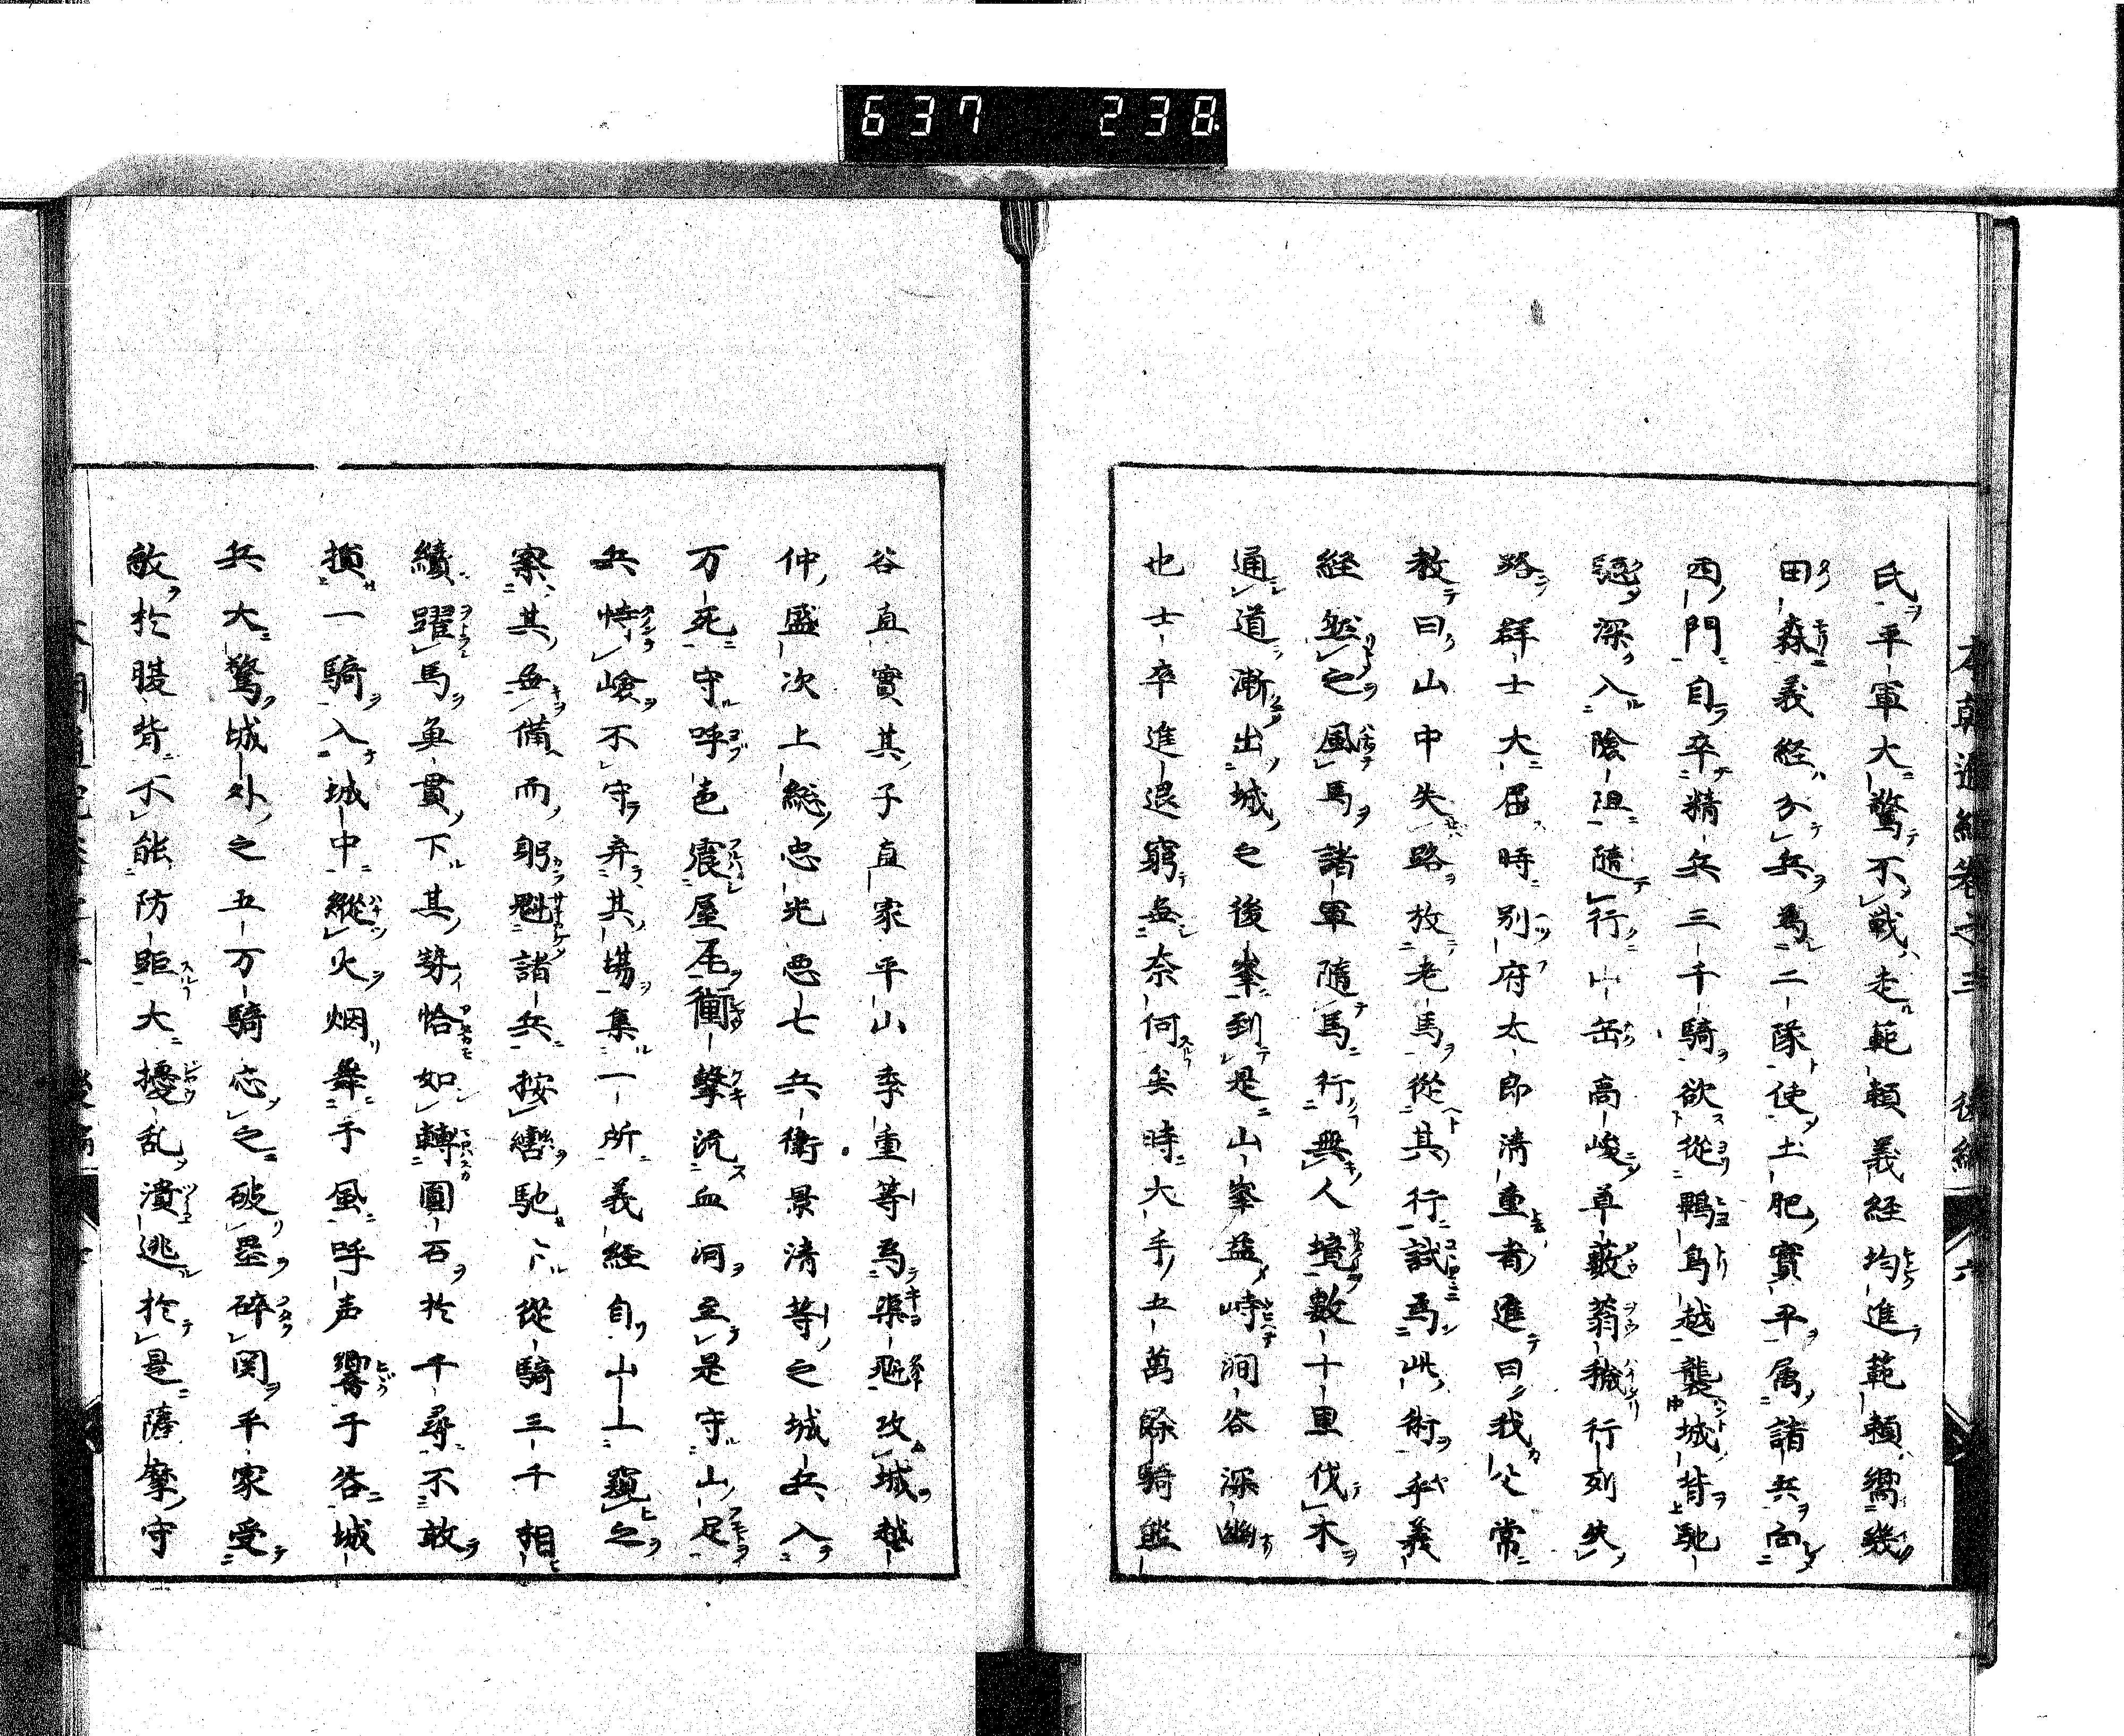 637 238
氏平軍大驚不戦走範頼義経均進範頼嚮幾
田森義経分兵為二隊使土肥實平属諸兵向
西門自卒精兵三千騎欲從鵯鳥越襲城背馳
深入險阻隨行山岳高峻草藪蓊穢行列失
路群士大屈時別府太郎清重者進曰我公常
教曰山中失路放老馬從其行試為此術乎義
経然之風馬諸軍隨馬行無人境數十里伐木
通道漸出城之後峯到是山峯益峙澗谷深幽
也士卒進退窮無奈何矣時大手五萬餘騎熊
谷直實其子直家平山季重等為渠魁攻城越
仲盛次上総忠光悪七兵衛景清等之城兵入
万死守呼邑震屋瓦衝撃流血河至是守山足
兵恃嶮不守弃其場集一所義経自山上窺之
察其無備而躬魁諸兵按轡馳下從騎三千相
續躍馬魚貫下其勢恰如轉圓石於千尋不敢
損一騎入城中縱火烟舞于風呼声響于谷城
兵大驚城外之五万騎応之破壘碎関平家受
敵於腹背不能防距大擾乱潰逃於是薩摩守